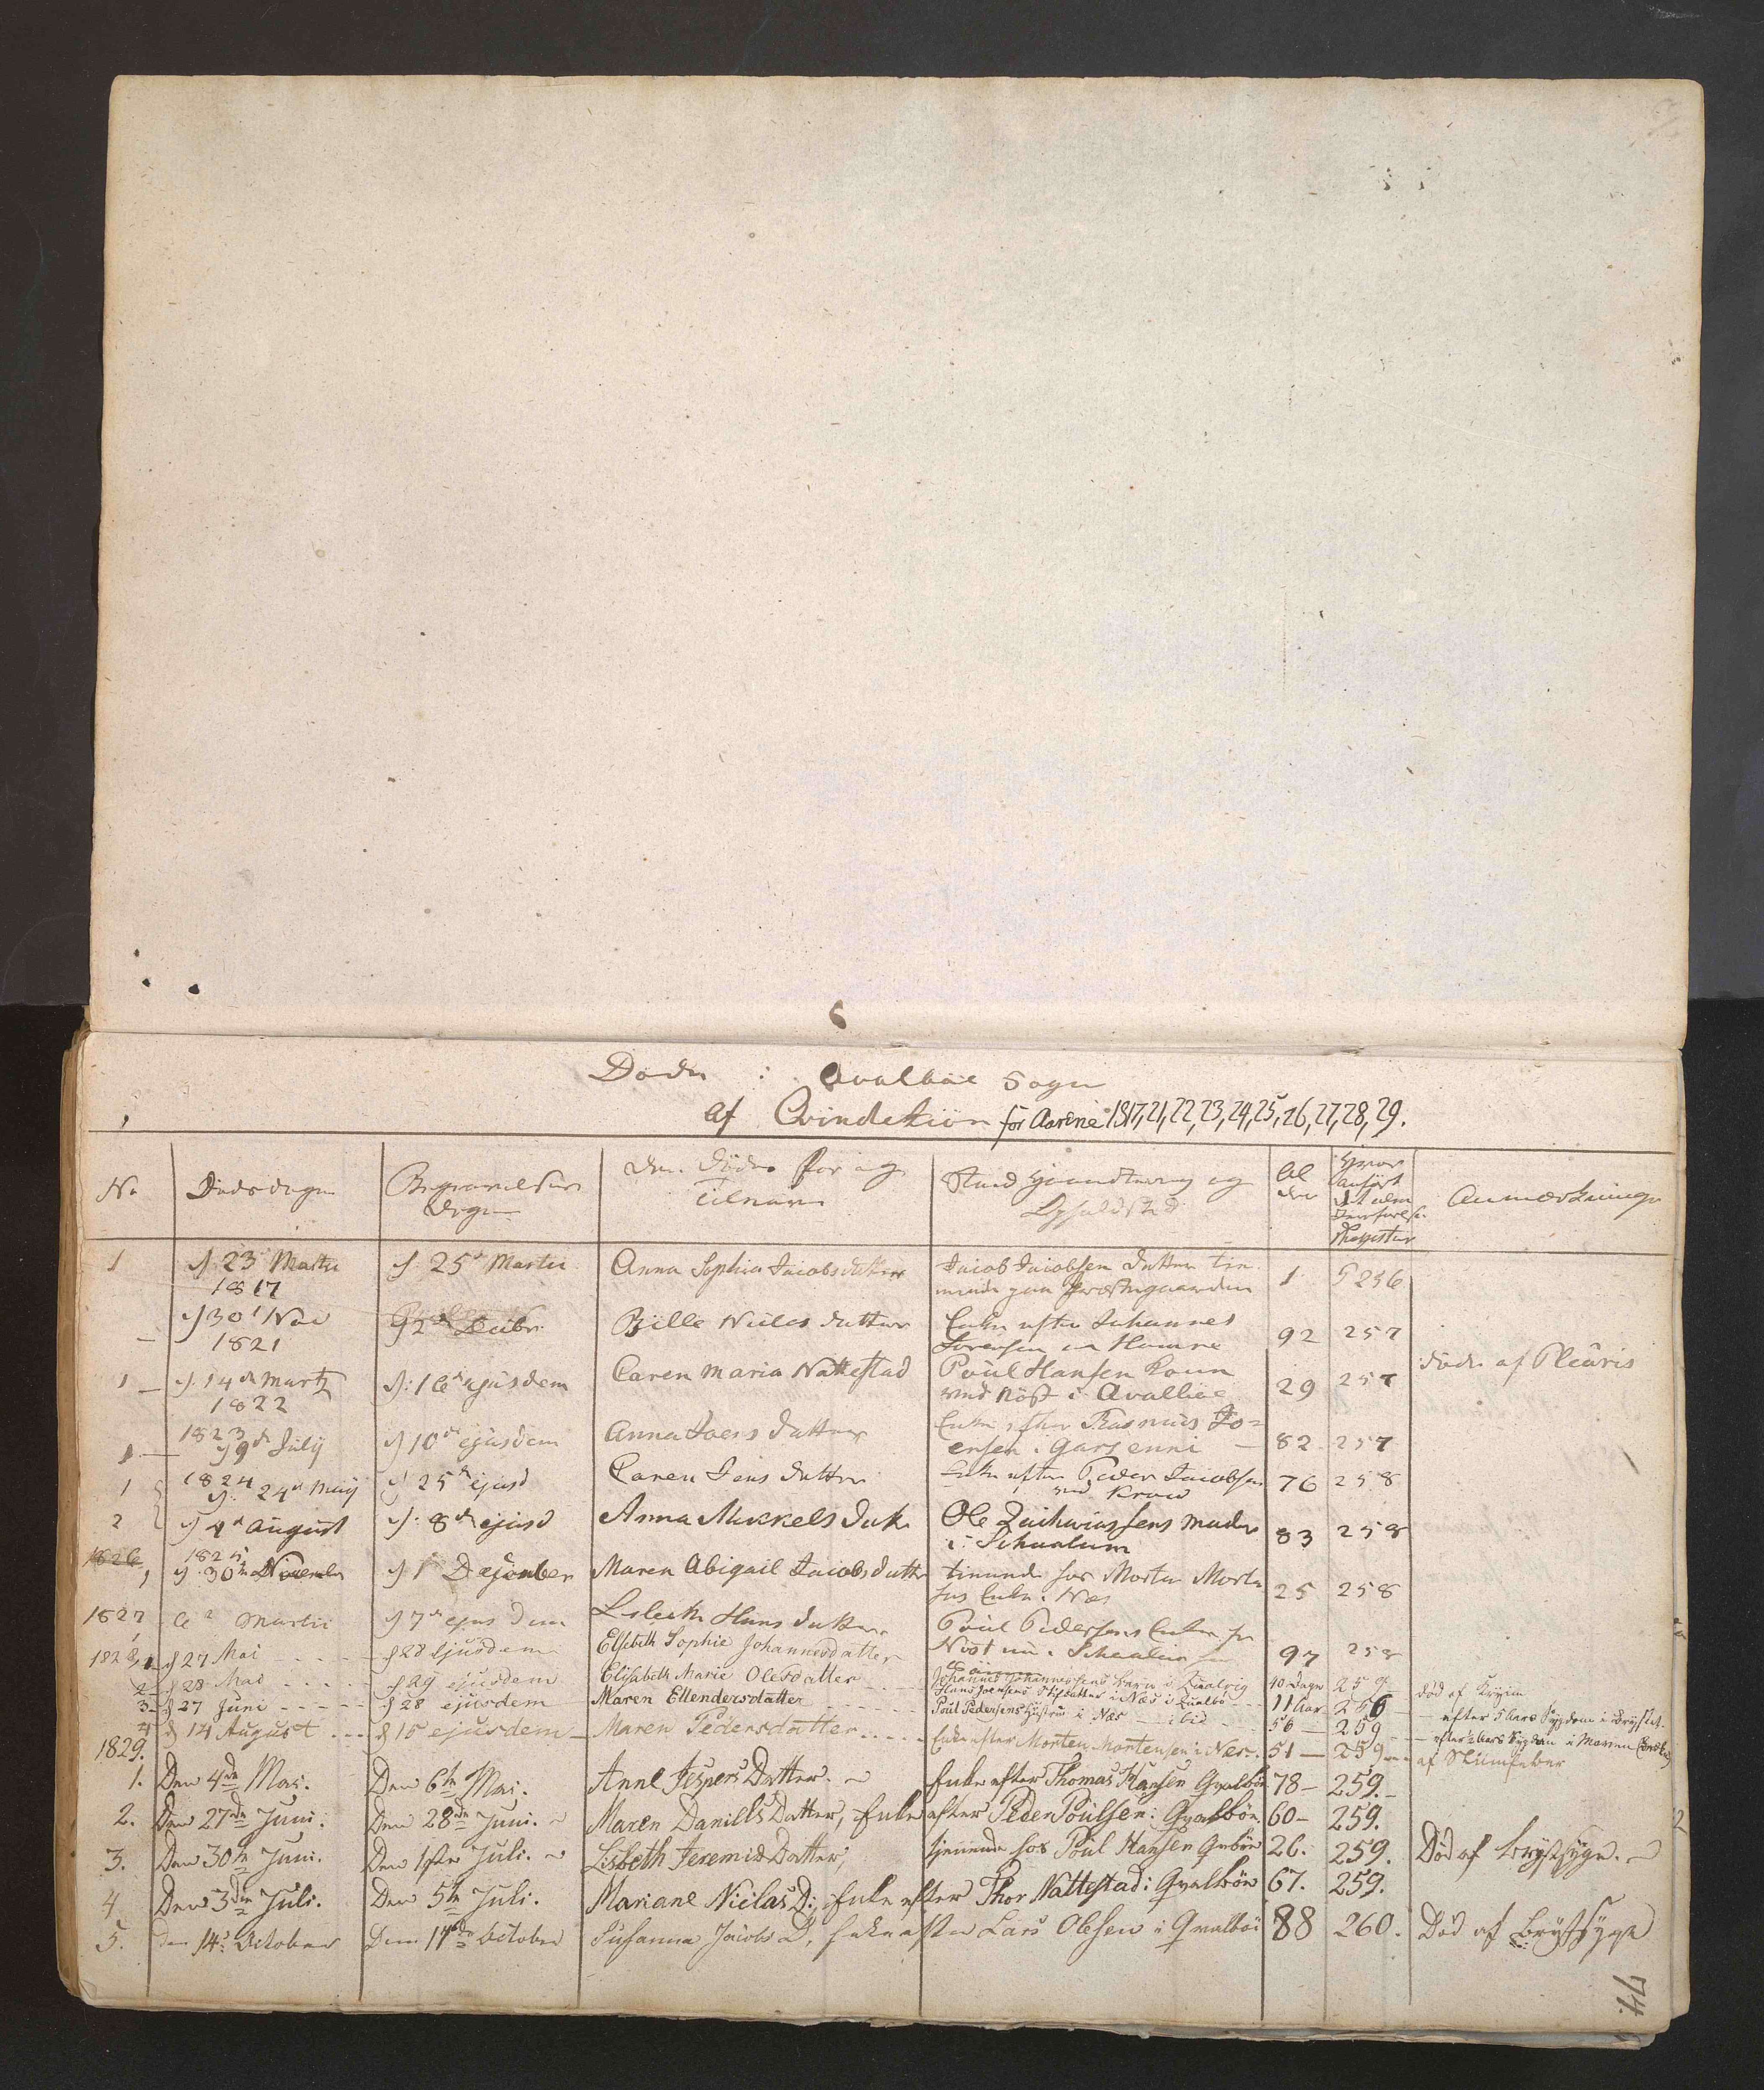 Døde i Qvalböe Sogn
af Qvindekiön for Aarene 1817, 21, 22, 23, 24, 25, 26, 27, 28, 29.
No Dødsdagen Begravelses Dagen Den Dødes For og Tilnavn Stand Haandtering og Opholdsted Al der Hvor anført det alm Jevnførelse Register Anmærkninger
1 d. 23 Martii 1817 d. 25de Martii Anna Sophia Jacobsdatter Jacob Jacobsen datter tienende paa Præstegaarden 1 S 256
d 30te Nov 1821 2de Decbr Bille Niclas datter Enke efter Johannes Sorensen 92 257
1 d. 14de Martz 1822 d: 16de ejusdem Caren Maria Nattestad Poul Hansen Kone ved Nöst i Qvalböe 29 257 døde af Pleuris
1 1823 d 9de July d 10de ejusdem Anna Joens datter Enke efter Rasmus Joensen i Garsenni 82 257
1 1824 d. 24de May d 25de ejusd Caren Jens datter Enke efter Peder Jacobsen ved Kraae 76 258
2 d 4de August d. 8de ejusd Anna Mikkels datt Ole Zachariassens moder i Schaalum 83 258
1826, 1825 d. 30te November d 1 December Maren Abigail Jacobsdatter tienende hos Morten Mortensens Enke i Næs 25 258
1827, Martii d 7de ejusdem Lisbeth Hans datter Poul Pedersens Enke 97 258
1828, 1 d 27 Mai d 28 ejusdem Elsebeth Sophie Johannesdatter Johannes Johannessens Barn i Qvalvig 10 Dage 259 Död af
2 d 28 Mai d 29 ejusdem Elisabeth Marie Olesdatter Hans Joensens Stifdatter i Næs i Qvalbö 11 Aar 256 efter 5 Aars Sygdom i Brystet
3 d 27 Juni d 28 ejusdem Maren Ellendersdatter Poul Pedersens Hustru i Næs ibid 56 259 efter 2 Aars Sygdom i Maven
4 d 14 August d 15 ejusdem Maren Pedersdatter Enke efter Morten Mortensen i Næs. 51 259 af Slimfeber
1829.
1. Den 4de Mai. Den 6te Mai. Anne Jespers Datter. Enke efter Thomas Hansen Qvalbön 78 259.
2. Den 27de Juni. Den 28de Juni. Maren Daniels Datter, Enke efter Peder Poulsen i Qvalbön. 60 259.
3. Den 30te Juni. Den 1ste Juli. Lisbeth Jeremias Datter, tjenende hos Poul Hansen Qvalbön 26. 259. Död af Brystsyge.
4 Den 3die Juli. Den 5te Juli. Mariane Niclas D:, Enke efter Thor Nattestad i Qvalbön 67. 259.
5. den 14de October Den 17de October Susanna Jacobs D. Enke efter Lars Olesen i Qvalböe 88 260. Död af Brystsyge
74.